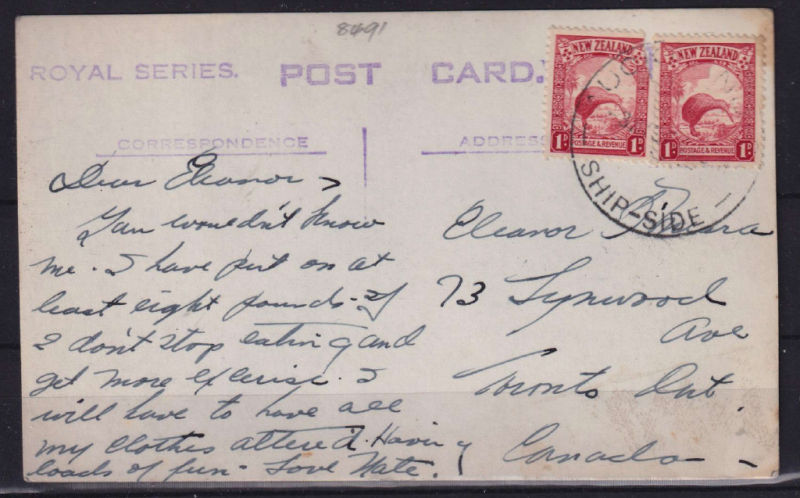 8491
ROYAL SERIES. POST CARD.
CORRESPONDENCE
ADDRESS
NEW ZEALAND
1D 1D
POSTAGE & REVENUE
NEW ZEALAND
1D 1D
POSTAGE & REVENUE
SHIP-SIDE
Dear Eleanor,
You wouldn't know
me. I have put on at
least eight pounds. If
I don't stop eating and
get more exerise. I
will have to have all
my clothes altered. Having
loads of fun. Love Kate.
Eleanor
73 Lynwood
Ave
Toronto Ont.
Canada